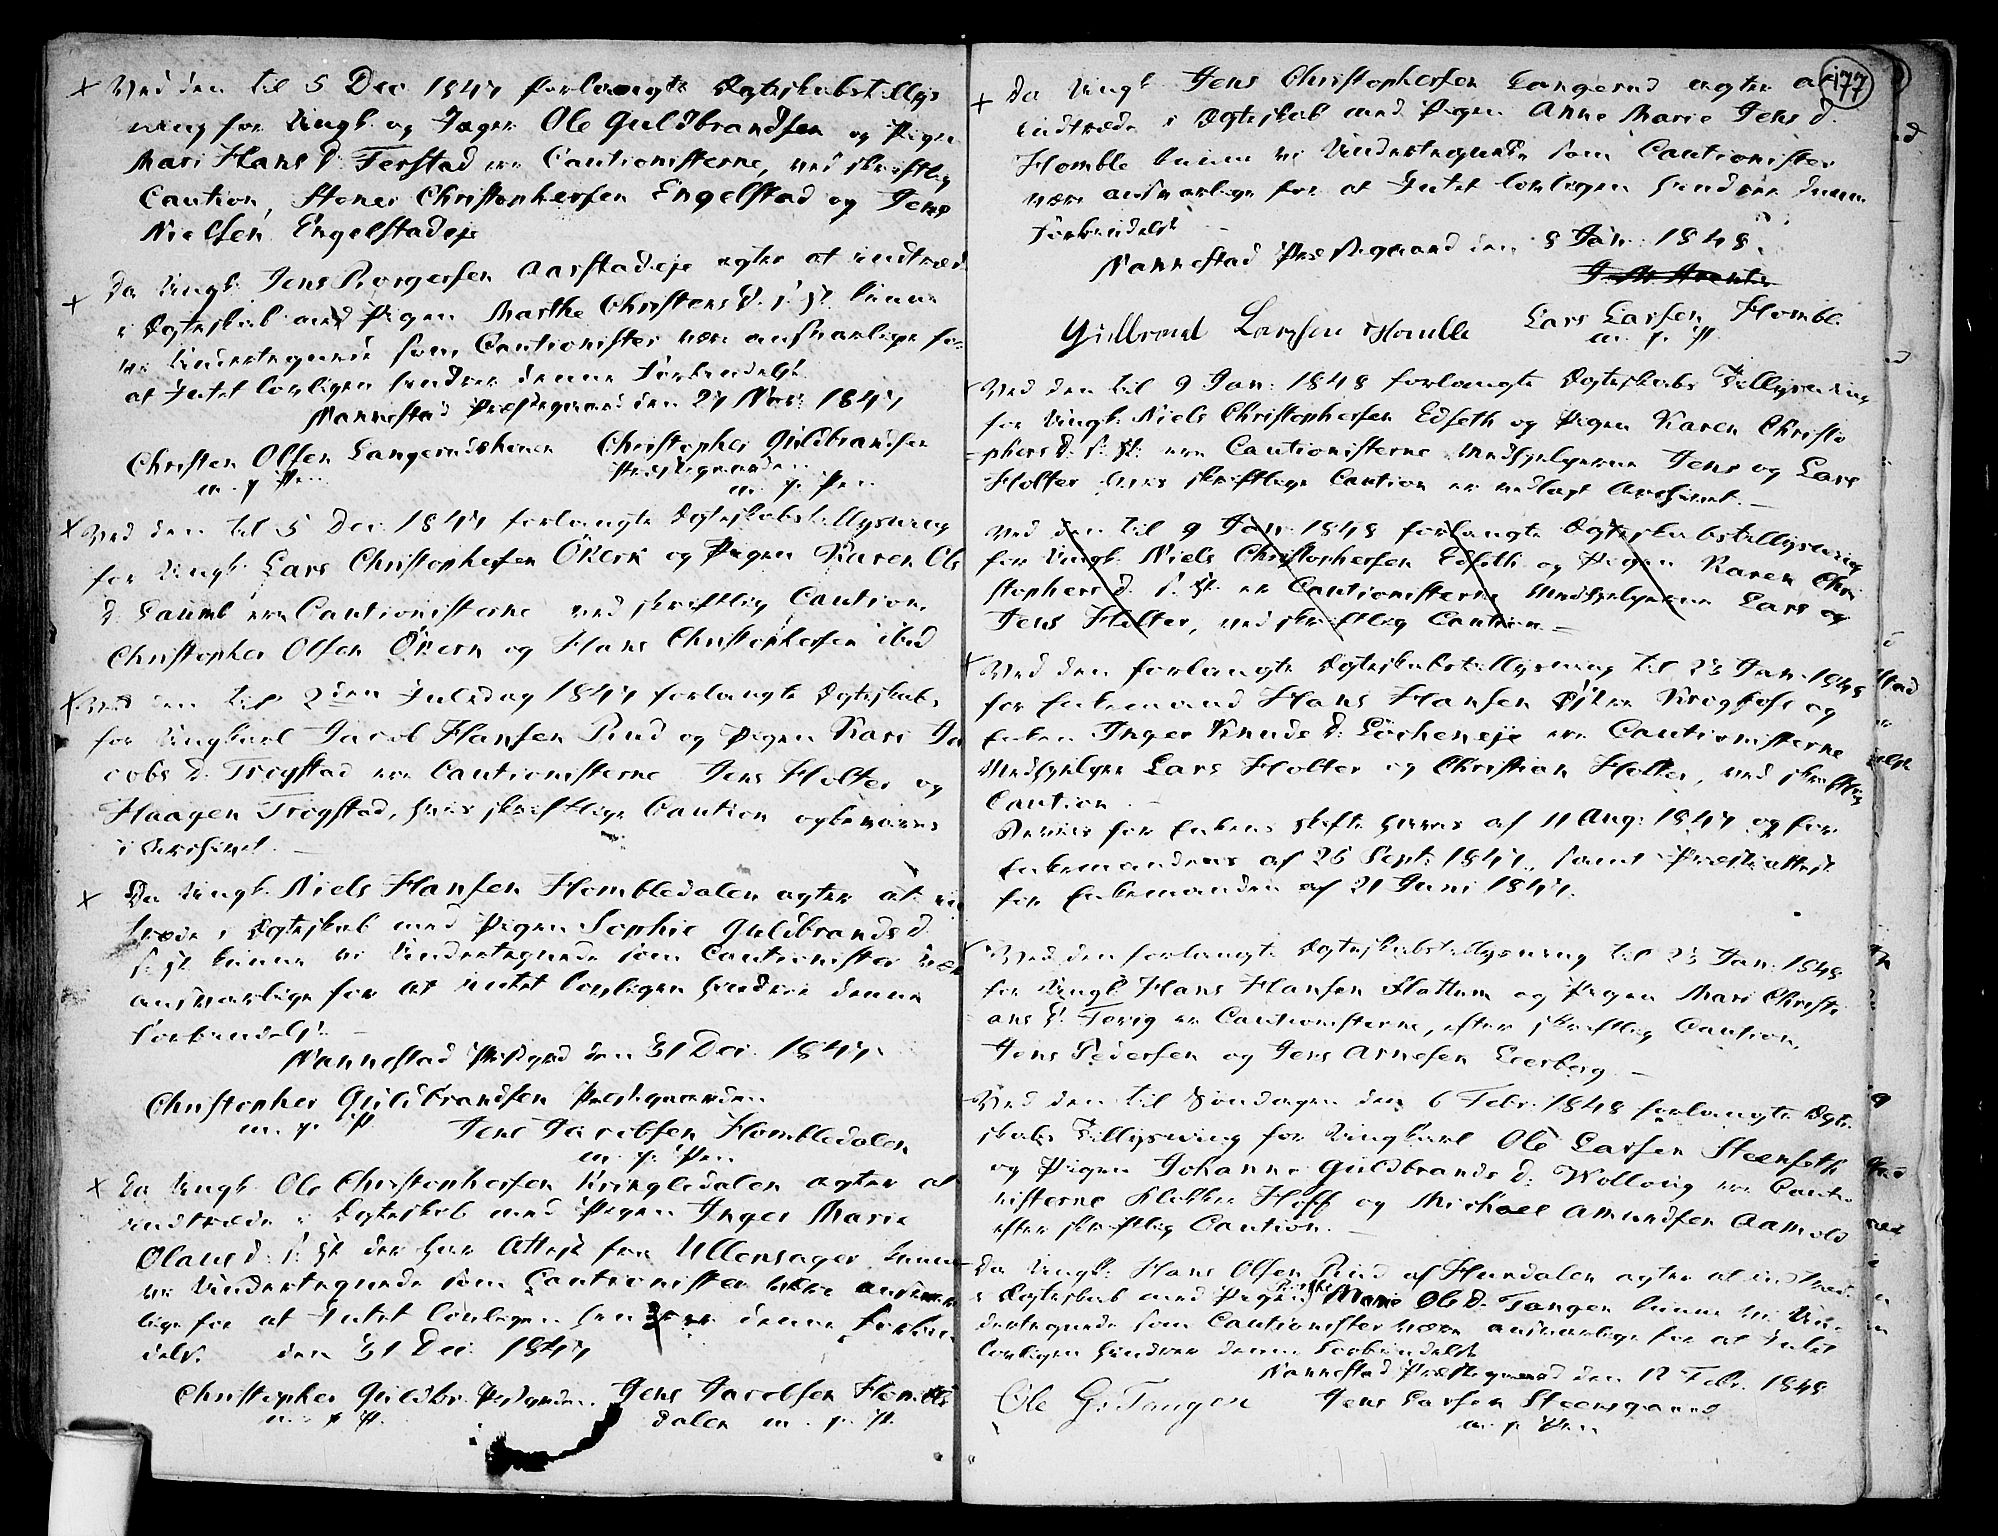 Ved den til 5 Dec 1847 forlangte Ægteskabstillys
ning for Ungk. og Jæger Ole Guldbrandsen og Pigen
Mari Hans D. Ferstad ere Cautionisterne, ved skriftlig
Caution, Christophersen Engelstad og Jens
Nielsen Engelstadeje
Da Ungk. Jens Borgersen Aarstadeje agter at indtræde
i Ægteskab med Pigen Marthe Christens D. s. St. kunne
vi Undertegnede som Cautionister være ansvarlige for
at Intet lovligen hindrer denne Forbindelse
Nannestad Præstegaard den 27 Nov. 1847
Christen Olsen Langerudshenen Christopher Guldbrandsen
Præstegaarden
m. p. Pen m. p. Pen
Ved den til 5 Dec 1847 forlangte Ægteskabstillysning
for Ungk. Lars Christophersen Ökern og Pigen Karen Ols
D. Laumb ere Cautionisterne ved skriftlig Caution,
Christopher Olsen Ökern og Hans Christophersen ibid
Ved den til 2den Juledag 1847 forlangte Ægteskab.
for Ungkarl Jacob Hansen Rud og Pigen Kari Ja
cobs D. Trogstad ere Cautionisterne Jens Holter og
Haagen Trogstad, hvis skriftlige Caution opbevares
i Archivet. —
Da Ungk. Niels Hansen Hombledalen agter at ind
træde i Ægteskab med Pigen Sophie Guldbrands D.
s. St. kunne vi Undertegnede som Cautionister være
ansvarlige for at intet lovligen hindrer denne
Forbindelse. —
Nannestad Præstgrd den 31 Dec. 1847.
Christopher Guldbrandsen Præstegaarden
m. p. P Jens Jacobsen Hombledalen
m. p. Pen
Da Ungk. Ole Christophersen Kringledalen agter at
indtræde i Ægteskab med Pigen Inger Marie
Olaus D. s. St. der har Attest fra Ullensager kunne
vi Undertegnede som Cautionister være ansvar
lige for at Intet lovligen hindrer denne Forbin
delse. den 31 Dec. 1847
Christopher Guldbr. Præstgrden. Jens Jacobsen Homble
m. p. P. dalen m. p. P.
177
Da Ungk. Jens Christophersen Langerud agter at
indtræde i Ægteskab med Pigen Anne Marie Jens D.
Homble kunne vi Undertegnede som Cautionister
være ansvarlige for at Intet lovligen hindrer denne
Forbindelse
Nannestad Præstegaard den 8 Jan. 1848.
Guldbrand Larssen Homble Lars Larsen Homble
m. p. P
Ved den til 9 Jan. 1848 forlangte Ægteskabs Tillysning
for Ungk. Niels Christophersen Edseth og Pigen Karen Christo
phers D. s. St. ere Cautionisterne Medhjelperne Jens og Lars
Holter hvis skriftlige Caution er vedlagt Archivet. —
Ved den til 9 Jan. 1848 forlangte Ægteskabstillysning
for Ungk. Niels Christophersen Edseth og Pigen Karen Chri
stophers D. s. St. er Cautionisterne Medhjelperne Lars og
Jens Holter, ved skriftlig Caution —
Ved den forlangte Ægteskabstillysning til 23 Jan. 1848
for Enkemand Hans Hansen Krogfoss og
Enken Inger Knuds D. Löcheneje ere Cautionisterne
Medhjelper Lars Holter og Christian Holter, ved skriftlig
Caution. —
Beviis for Enkens Skifte haves af 11 Aug. 1847 og for
Enkemandens af 26 Sept. 1847, samt Præsteattest
for Enkemanden af 21 Juni 1847.
Ved den forlangte Ægteskabstillysning til 23 Jan. 1848
for Ungk. Hans Hansen Slattum og Pigen Mari Christi
ans D. Torig er Cautionisterne, efter skriftlig Caution,
Jens Pedersen og Jens Arnesen Leerberg. —
Ved den til Söndagen den 6 Febr. 1848 forlangte Ægte
skabs Tillysning for Ungkarl Ole Larsen Steenseth
og Pigen Johanne Guldbrands D. Wollovig ere Cautio
nisterne Klokker Hoff og Michael Amundsen Aamold
efter skriftlig Caution. —
Da Ungk. Hans Olsen Rud af Hurdalen agter at indtræde
i Ægteskab med Pigen Marie Ols D. Tangen kunne vi Un
dertegnede som Cautionister være ansvarlige for at Intet
lovligen hindrer denne Forbindelse
Nannestad Præstegaard den 12 Febr. 1848
Ole G. Tangen Jens Larsen Steensgaard
m. p. Pen